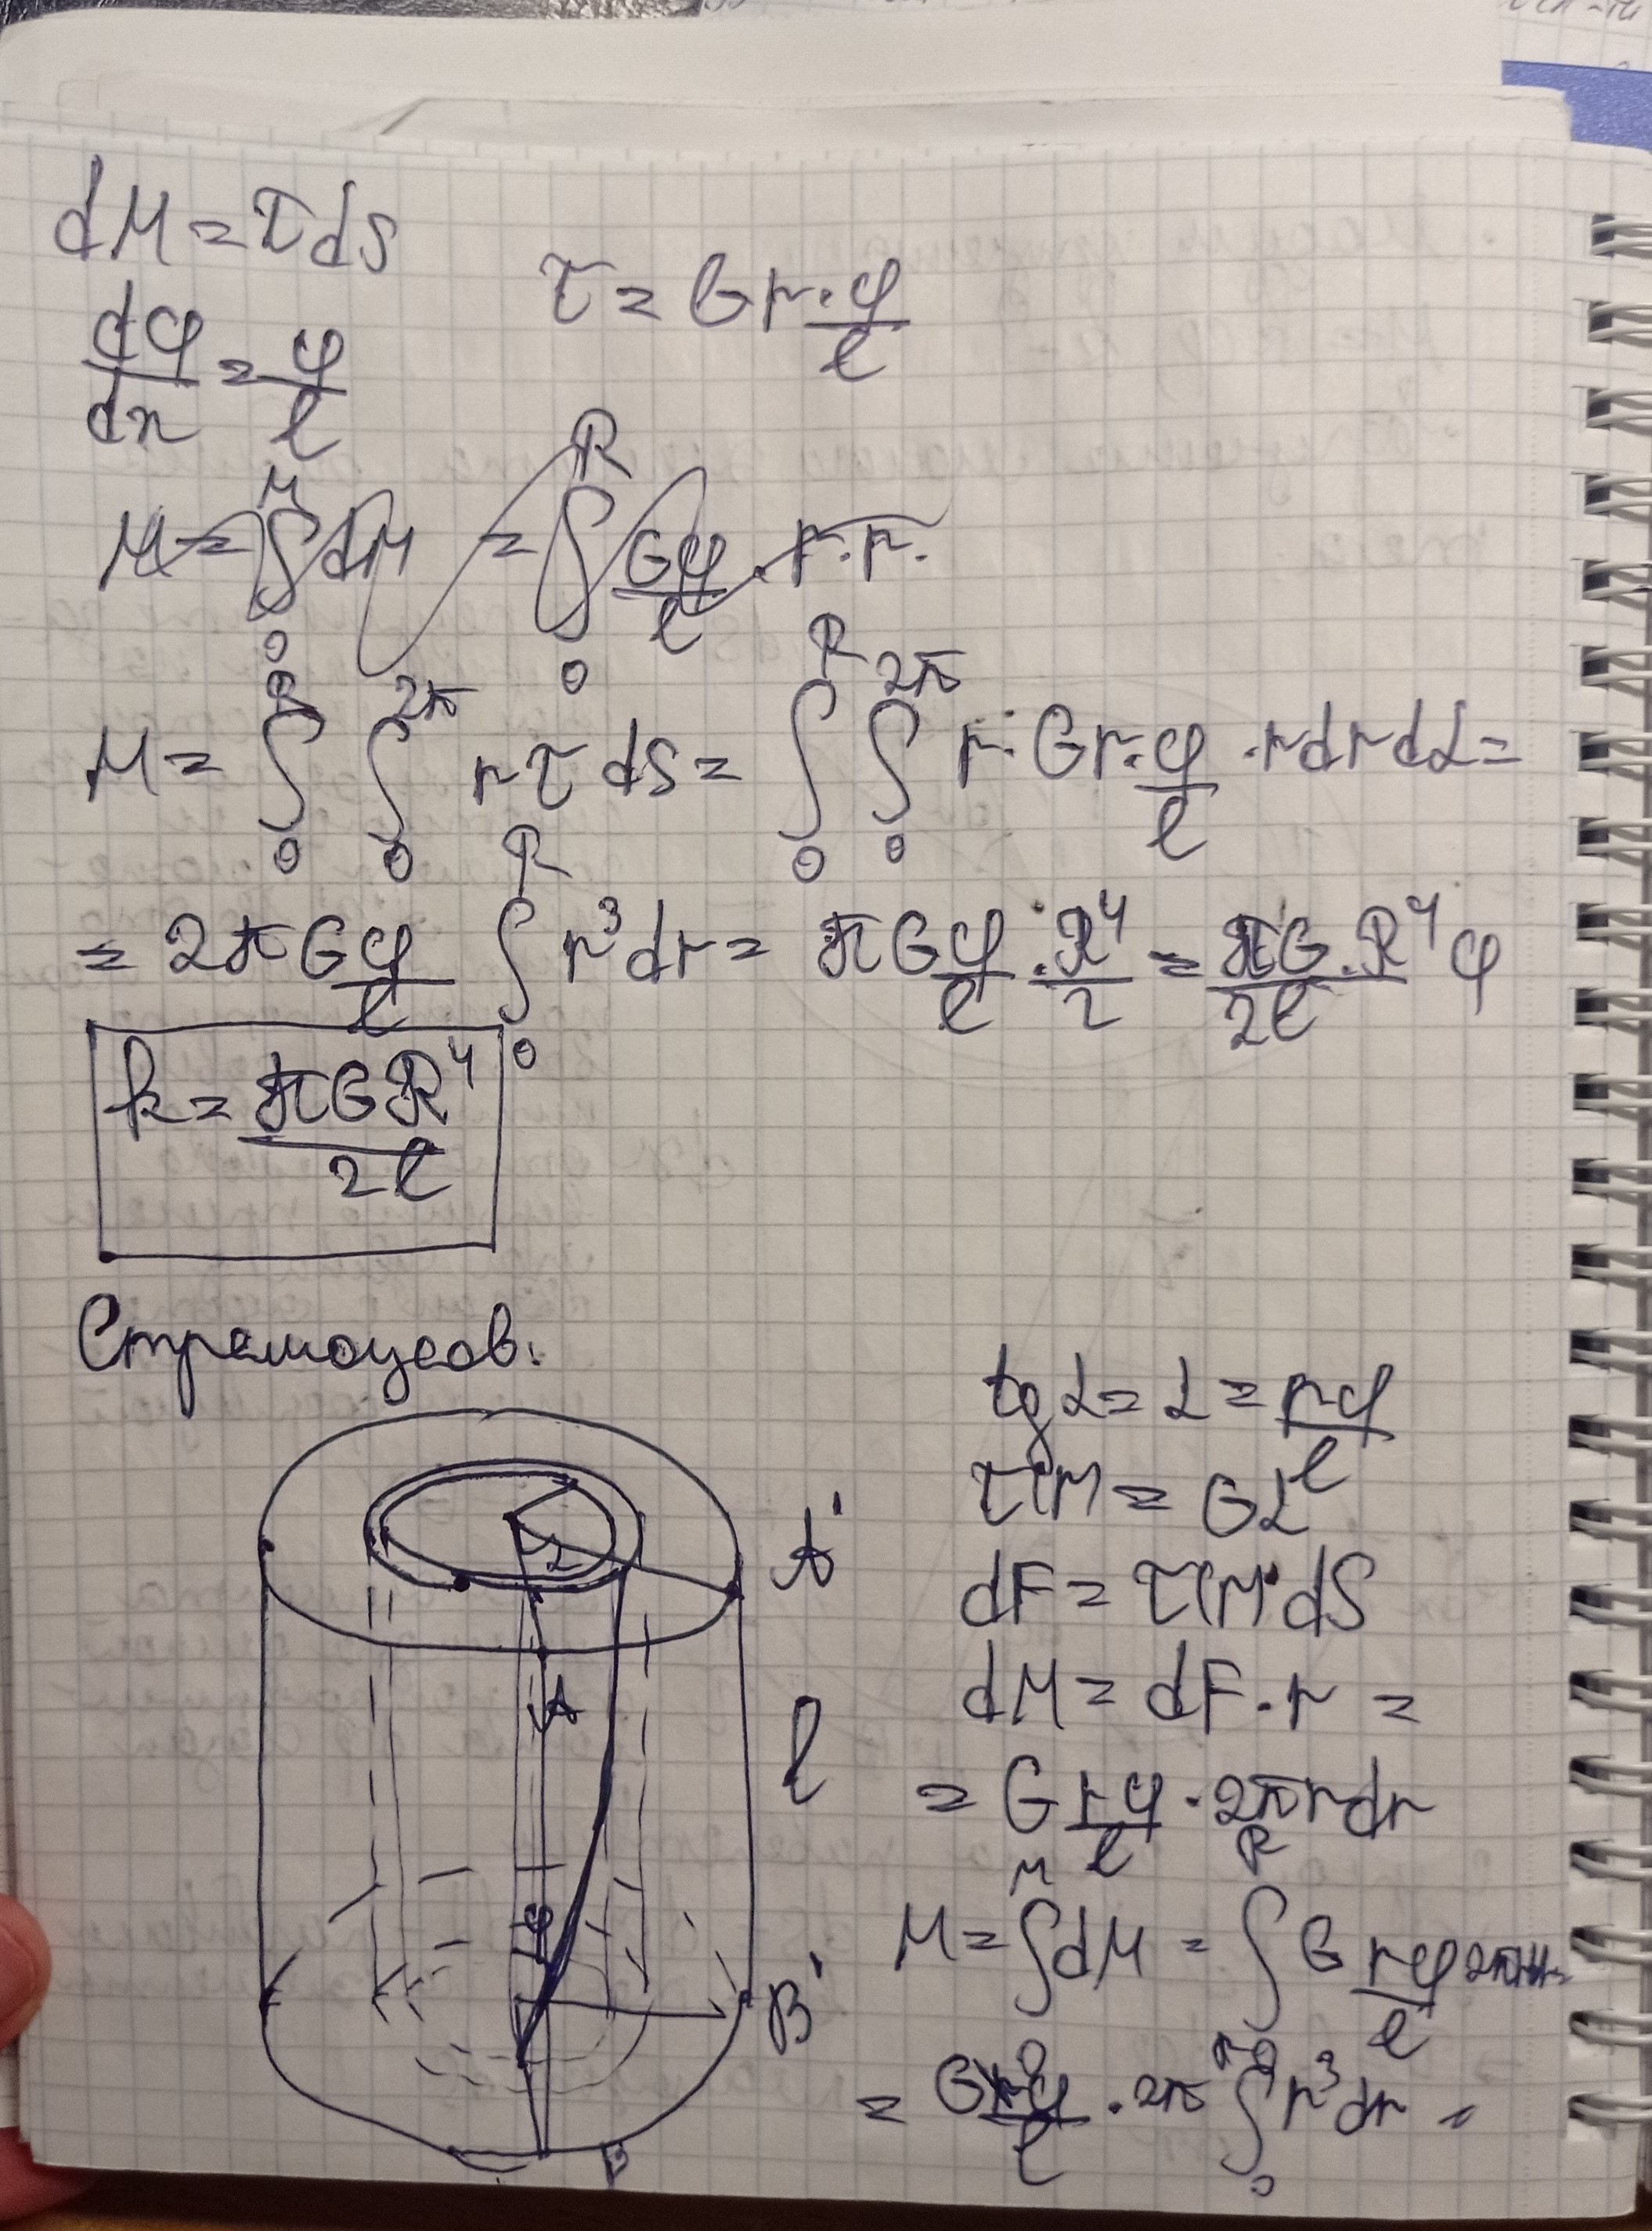 dM = τ dS
τ = G r · φ/l
dφ/dx = φ/l
M = ∫₀ᴹ dM = ∫₀ᴿ Gφ/l · r · r ·
M = ∫₀ᴿ ∫₀²π r τ dS = ∫₀ᴿ ∫₀²π r · G r · φ/l · r dr dα =
= 2π G φ/l ∫₀ᴿ r³ dr = π G φ/l · R⁴/2 = πG · R⁴/2l φ
k = πGR⁴/2l
Стремоусов:
tg α = α = rφ/l
τ(r) = Gα
dF = τ(r) · dS
A'
α
dM = dF · r =
A
l
= G rφ/l · 2πr dr
φ
M = ∫₀ᴹ dM = ∫₀ᴿ G rφ/l
B'
= Gφ/l · 2π ∫₀ᴿ r³ dr =
B